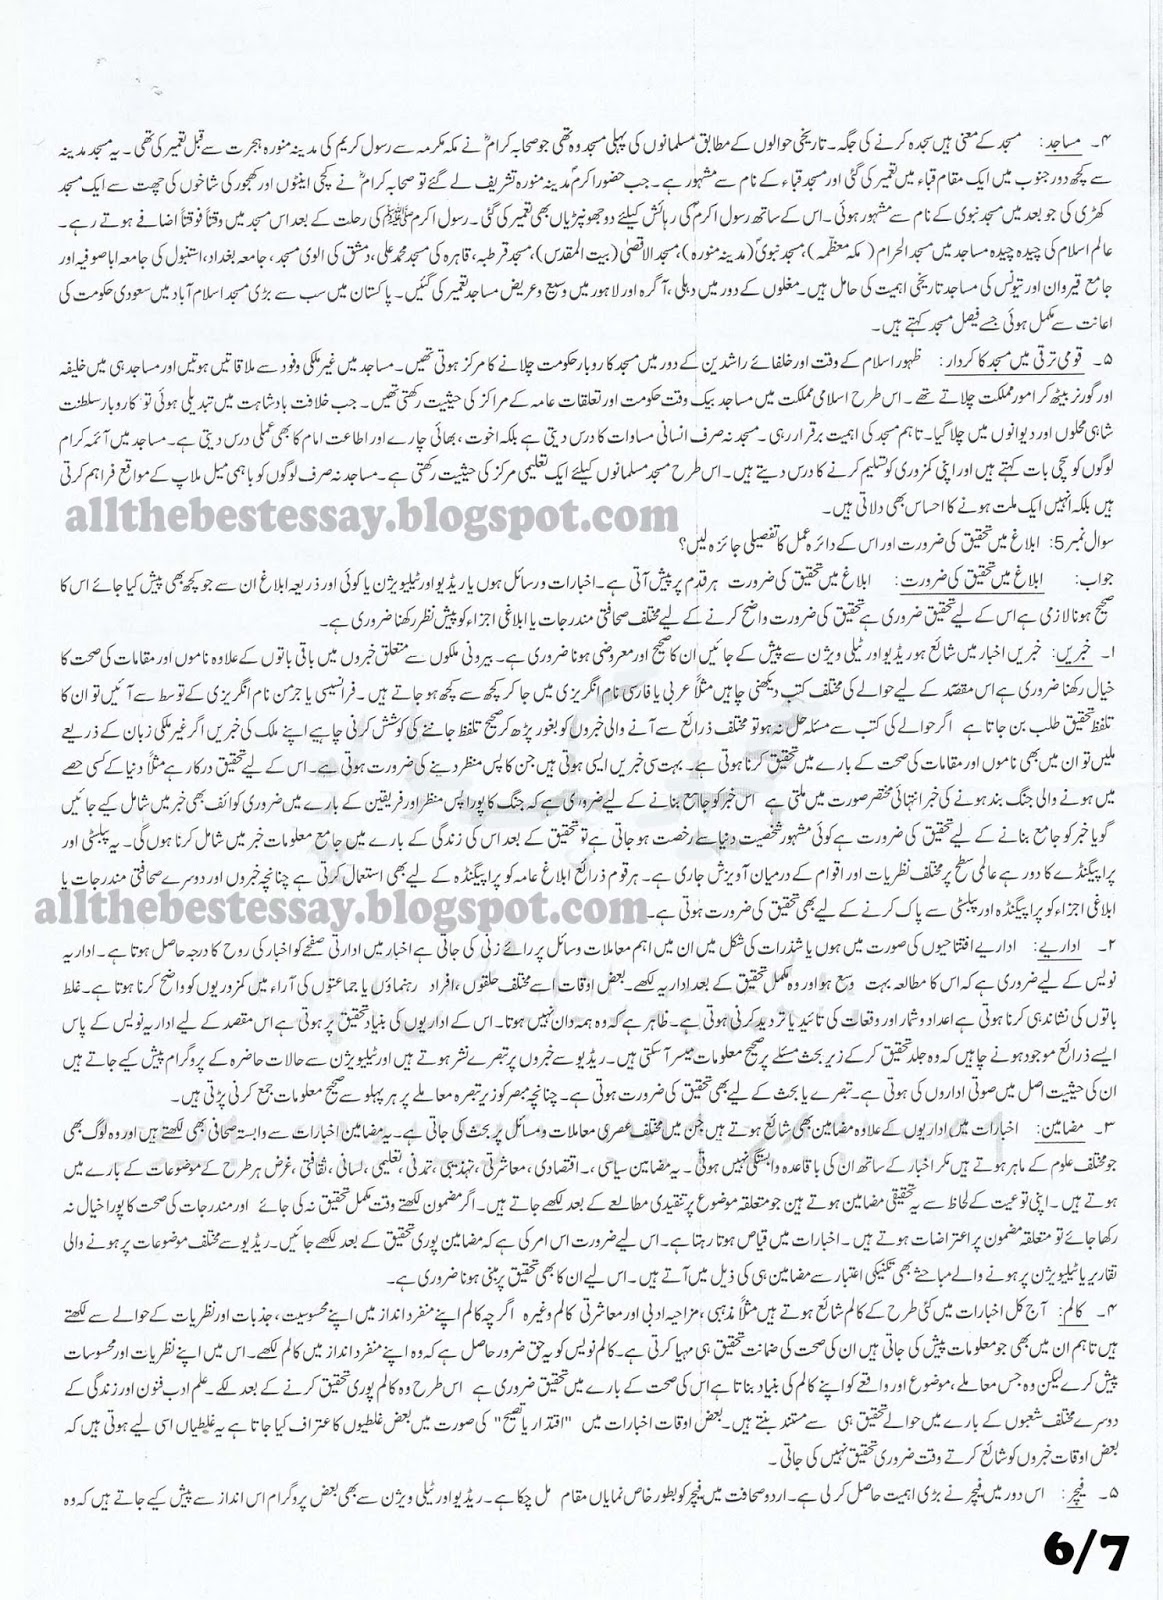 ۴۔ مساجد: مسجد کے معنی ہیں سجدہ کرنے کی جگہ۔ تاریخی حوالوں کے مطابق مسلمانوں کی پہلی مسجد وہ تھی جو صحابہ کرامؓ نے مکہ مکرمہ سے رسول کریم کی مدینہ منورہ ہجرت سے قبل تعمیر کی تھی۔ یہ مسجد مدینہ
سے کچھ دور جنوب میں ایک مقام قباء میں تعمیر کی گئی اور مسجد قباء کے نام سے مشہور ہے۔ جب حضور اکرمؐ مدینہ منورہ تشریف لے گئے تو صحابہ کرامؓ نے کچی اینٹوں اور کھجور کی شاخوں کی چھت سے ایک مسجد
کھڑی کی جو بعد میں مسجد نبوی کے نام سے مشہور ہوئی۔ اس کے ساتھ رسول اکرمؐ کی رہائش کیلئے دو جھونپڑیاں بھی تعمیر کی گئی۔ رسول اکرمﷺ کی رحلت کے بعد اس مسجد میں وقتاً فوقتاً اضافے ہوتے رہے۔
عالم اسلام کی چیدہ چیدہ مساجد میں مسجد الحرام (مکہ معظّمہ)، مسجد نبویؐ (مدینہ منورہ)، مسجد الاقصیٰ (بیت المقدس)، مسجد قرطبہ، قاہرہ کی مسجد محمد علی، دمشق کی الوی مسجد، جامعہ بغداد، استنبول کی جامعہ ایا صوفیہ اور
جامع قیروان اور تیونس کی مساجد تاریخی اہمیت کی حامل ہیں۔ مغلوں کے دور میں دہلی، آگرہ اور لاہور میں وسیع و عریض مساجد تعمیر کی گئیں۔ پاکستان میں سب سے بڑی مسجد اسلام آباد میں سعودی حکومت کی
اعانت سے مکمل ہوئی جسے فیصل مسجد کہتے ہیں۔
۵۔ قومی ترقی میں مسجد کا کردار: ظہور اسلام کے وقت اور خلفائے راشدین کے دور میں مسجد کاروبار حکومت چلانے کا مرکز ہوتی تھیں۔ مساجد میں غیر ملکی وفود سے ملاقاتیں ہوتیں اور مساجد ہی میں خلیفہ
اور گورنر بیٹھ کر امور مملکت چلاتے تھے۔ اس طرح اسلامی مملکت میں مساجد بیک وقت حکومت اور تعلقات عامہ کے مراکز کی حیثیت رکھتی تھیں۔ جب خلافت بادشاہت میں تبدیلی ہوئی تو کاروبار سلطنت
شاہی محلوں اور دیوانوں میں چلا گیا۔ تاہم مسجد کی اہمیت برقرار رہی۔ مسجد نہ صرف انسانی مساوات کا درس دیتی ہے بلکہ اخوت، بھائی چارے اور اطاعت امام کا بھی عملی درس دیتی ہے۔ مساجد میں آئمہ کرام
لوگوں کو سچی بات کہتے ہیں اور اپنی کمزوری کو تسلیم کرنے کا درس دیتے ہیں۔ اس طرح مسجد مسلمانوں کیلئے ایک تعلیمی مرکز کی حیثیت رکھتی ہے۔ مساجد نہ صرف لوگوں کو باہمی میل ملاپ کے مواقع فراہم کرتی
ہیں بلکہ انہیں ایک ملت ہونے کا احساس بھی دلاتی ہیں۔
allthebestessay.blogspot.com
سوال نمبر 5: ابلاغ میں تحقیق کی ضرورت اور اس کے دائرہ عمل کا تفصیلی جائزہ لیں؟
جواب: ابلاغ میں تحقیق کی ضرورت: ابلاغ میں تحقیق کی ضرورت ہر قدم پر پیش آتی ہے۔ اخبارات و رسائل ہوں یا ریڈیو اور ٹیلیویژن یا کوئی اور ذریعہ ابلاغ ان سے جو کچھ بھی پیش کیا جائے اس کا
صحیح ہونا لازمی ہے اس کے لیے تحقیق ضروری ہے تحقیق کی ضرورت واضح کرنے کے لیے مختلف صحافتی مندرجات یا ابلاغی اجزاء کو پیش نظر رکھنا ضروری ہے۔
۱۔ خبریں: خبریں اخبار میں شائع ہو ریڈیو اور ٹیلی ویژن سے پیش کے جائیں ان کا صحیح اور معروضی ہونا ضروری ہے۔ بیرونی ملکوں سے متعلق خبروں میں باقی باتوں کے علاوہ ناموں اور مقامات کی صحت کا
خیال رکھنا ضروری ہے اس مقصد کے لیے حوالے کی مختلف کتب دیکھنی چاہیں مثلاً عربی یا فارسی نام انگریزی میں جا کر کچھ سے کچھ ہو جاتے ہیں۔ فرانسیسی یا جرمن نام انگریزی کے توسط سے آئیں تو ان کا
تلفظ تحقیق طلب بن جاتا ہے اگر حوالے کی کتب سے مسئلہ حل نہ ہو تو مختلف ذرائع سے آنے والی خبروں کو بغور پڑھ کر صحیح تلفظ جاننے کی کوشش کرنی چاہیے اپنے ملک کی خبریں اگر غیر ملکی زبان کے ذریعے
ملیں تو ان میں بھی ناموں اور مقامات کی صحت کے بارے میں تحقیق کرنا ہوتی ہے۔ بہت سی خبریں ایسی ہوتی ہیں جن کا پس منظر دینے کی ضرورت ہوتی ہے۔ اس کے لیے تحقیق درکار ہے مثلاً دنیا کے کسی حصے
میں ہونے والی جنگ بند ہونے کی خبر انتہائی مختصر صورت میں ملتی ہے اس خبر کو جامع بنانے کے لیے ضروری ہے کہ جنگ کا پورا پس منظر اور فریقین کے بارے میں ضروری کوائف بھی خبر میں شامل کیے جائیں
گویا خبر کو جامع بنانے کے لیے تحقیق کی ضرورت ہے کوئی مشہور شخصیت دنیا سے رخصت ہو جاتی ہے تو تحقیق کے بعد اس کی زندگی کے بارے میں جامع معلومات خبر میں شامل کرنا ہوں گی۔ یہ پبلسٹی اور
پراپیگنڈے کا دور ہے عالمی سطح پر مختلف نظریات اور اقوام کے درمیان آویزش جاری ہے۔ ہر قوم ذرائع ابلاغ عامہ کو پراپیگنڈہ کے لیے بھی استعمال کرتی ہے چنانچہ خبروں اور دوسرے صحافتی مندرجات یا
ابلاغی اجزاء کو پراپیگنڈہ اور پبلسٹی سے پاک کرنے کے لیے بھی تحقیق کی ضرورت ہوتی ہے۔
allthebestessay.blogspot.com
۲۔ اداریے: اداریے افتتاحیوں کی صورت میں ہوں یا شذرات کی شکل میں ان میں اہم معاملات وسائل پر رائے زنی کی جاتی ہے اخبار میں ادارتی صفحے کو اخبار کی روح کا درجہ حاصل ہوتا ہے۔ اداریہ
نویس کے لیے ضروری ہے کہ اس کا مطالعہ بہت وسیع ہو اور وہ مکمل تحقیق کے بعد اداریہ لکھے۔ بعض اوقات اسے مختلف حلقوں، افراد رہنماؤں یا جماعتوں کی آراء میں کمزوریوں کو واضح کرنا ہوتا ہے۔ غلط
باتوں کی نشاندہی کرنا ہوتی ہے اعداد و شمار اور وقعات کی تائید یا تردید کرنی ہوتی ہے۔ ظاہر ہے کہ وہ ہمہ دان نہیں ہوتا۔ اس کے اداریوں کی بنیاد تحقیق پر ہوتی ہے اس مقصد کے لیے اداریہ نویس کے پاس
ایسے ذرائع موجود ہونے چاہیں کہ وہ جلد تحقیق کر کے زیر بحث مسئلے پر صحیح معلومات میسر آ سکتی ہیں۔ ریڈیو سے خبروں پر تبصرے نشر ہوتے ہیں اور ٹیلیویژن سے حالات حاضرہ کے پروگرام پیش کیے جاتے ہیں
ان کی حیثیت اصل میں صوتی اداروں کی ہوتی ہے۔ تبصرے یا بحث کے لیے بھی تحقیق کی ضرورت ہوتی ہے۔ چنانچہ مبصر کو زیر تبصرہ معاملے پر ہر پہلو سے صحیح معلومات جمع کرنی پڑتی ہیں۔
۳۔ مضامین: اخبارات میں اداریوں کے علاوہ مضامین بھی شائع ہوتے ہیں جن میں مختلف عصری معاملات و مسائل پر بحث کی جاتی ہے۔ یہ مضامین اخبارات سے وابستہ صحافی بھی لکھتے ہیں اور وہ لوگ بھی
جو مختلف علوم کے ماہر ہوتے ہیں مگر اخبار کے ساتھ ان کی با قاعدہ وابستگی نہیں ہوتی۔ یہ مضامین سیاسی،۔ اقتصادی، معاشرتی، تہذیبی، تمدنی، تعلیمی، لسانی، ثقافتی، غرض ہر طرح کے موضوعات کے بارے میں
ہوتے ہیں۔ اپنی نوعیت کے لحاظ سے یہ تحقیقی مضامین ہوتے ہیں جو متعلقہ موضوع پر تنقیدی مطالعے کے بعد لکھے جاتے ہیں۔ اگر مضمون لکھتے وقت مکمل تحقیق نہ کی جائے اور مندرجات کی صحت کا پورا خیال نہ
رکھا جائے تو متعلقہ مضمون پر اعتراضات ہوتے ہیں۔ اخبارات میں قیاص ہوتا رہتا ہے۔ اس لیے ضرورت اس امر کی ہے کہ مضامین پوری تحقیق کے بعد لکھے جائیں۔ ریڈیو سے مختلف موضوعات پر ہونے والی
تقاریر یا ٹیلیویژن پر ہونے والے مباحثے بھی تکنیکی اعتبار سے مضامین ہی کی ذیل میں آتے ہیں۔ اس لیے ان کا بھی تحقیق پر مبنی ہونا ضروری ہے۔
۴۔ کالم: آج کل اخبارات میں کئی طرح کے کالم شائع ہوتے ہیں مثلاً مذہبی، مزاحیہ ادبی اور معاشرتی کالم وغیرہ اگر چہ کالم اپنے منفرد انداز میں اپنے محسوسیت، جذبات اور نظریات کے حوالے سے لکھتے
ہیں تاہم ان میں بھی جو معلومات پیش کی جاتی ہیں ان کی صحت کی ضمانت تحقیق ہی مہیا کرتی ہے۔ کالم نویس کو یہ حق ضرور حاصل ہے کہ وہ اپنے منفرد انداز میں کالم لکھے۔ اس میں اپنے نظریات اور محسوسات
پیش کرے لیکن وہ جس معاملے، موضوع اور واقعے کو اپنے کالم کی بنیاد بناتا ہے اس کی صحت کے بارے میں تحقیق ضروری ہے اس طرح وہ کالم پوری تحقیق کرنے کے بعد لکھے۔ علم ادب فنون اور زندگی کے
دوسرے مختلف شعبوں کے بارے میں حوالے تحقیق ہی سے مستند بنتے ہیں۔ بعض اوقات اخبارات میں "اقتدار یا تصیح" کی صورت میں بعض غلطیوں کا عتراف کیا جاتا ہے یہ غلطیاں اسی لیے ہوتی ہیں کہ
بعض اوقات خبروں کو شائع کرتے وقت ضروری تحقیق نہیں کی جاتی۔
۵۔ فیچر: اس دور میں فیچر نے بڑی اہمیت حاصل کر لی ہے۔ اردو صحافت میں فیچر کو بطور خاص نمایاں مقام مل چکا ہے۔ ریڈیو اور ٹیلی ویژن سے بھی بعض پروگرام اس انداز سے پیش کیے جاتے ہیں کہ وہ
6/7